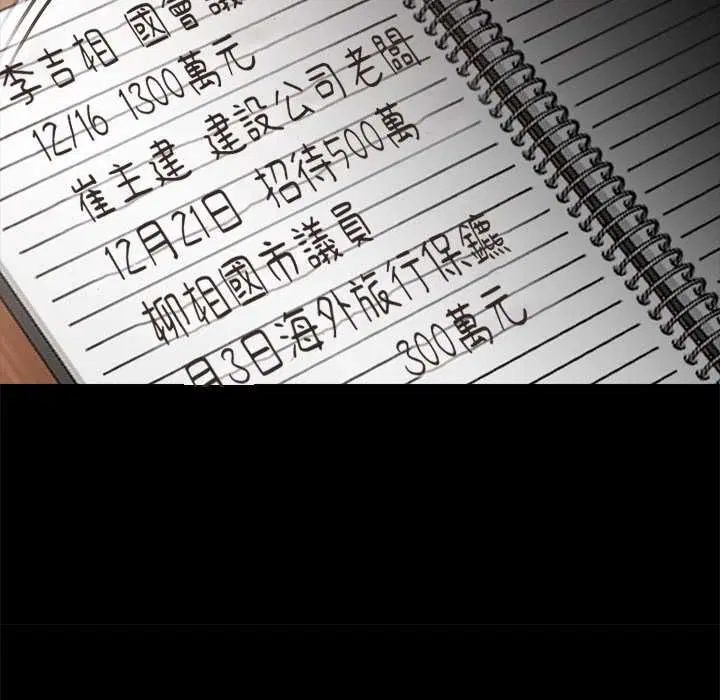 李吉相 國會議
12/16 1300萬元
崔主建 建設公司老闆
12月21日 招待500萬
柳相國市議員
月3日海外旅行保鑣
300萬元